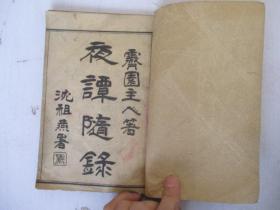 霽園主人著
夜譚隨錄
沈祖燕署